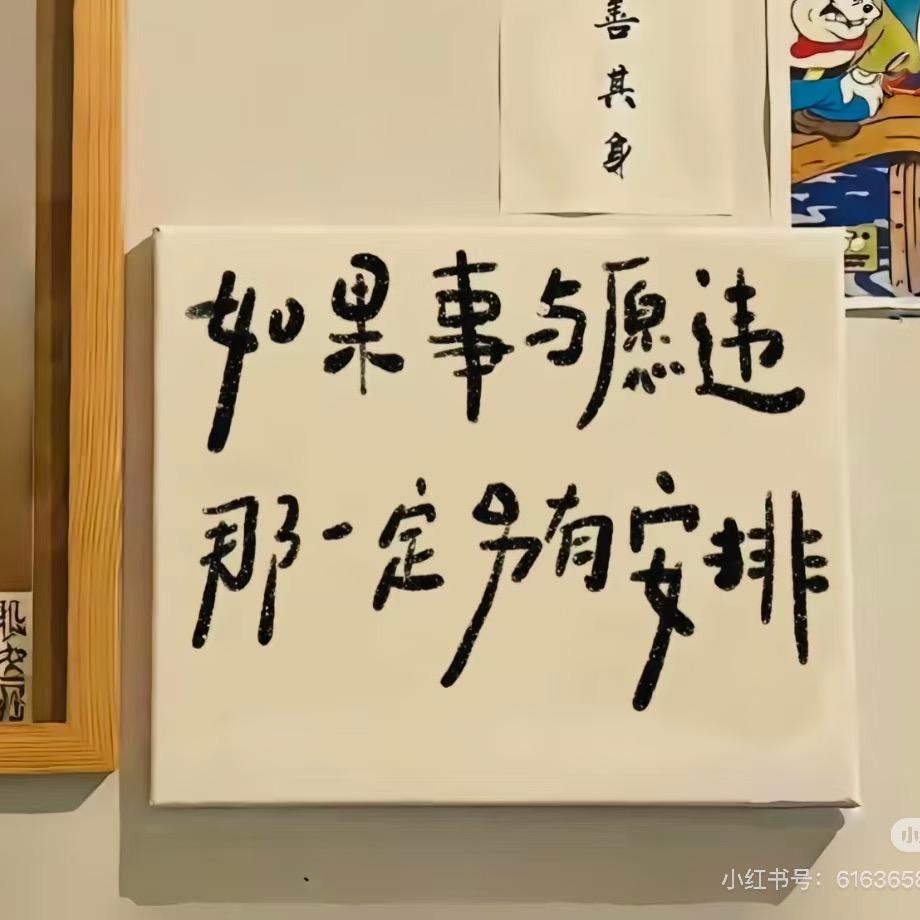 善其身
如果事与愿违
那一定另有安排
小红书号：6163658